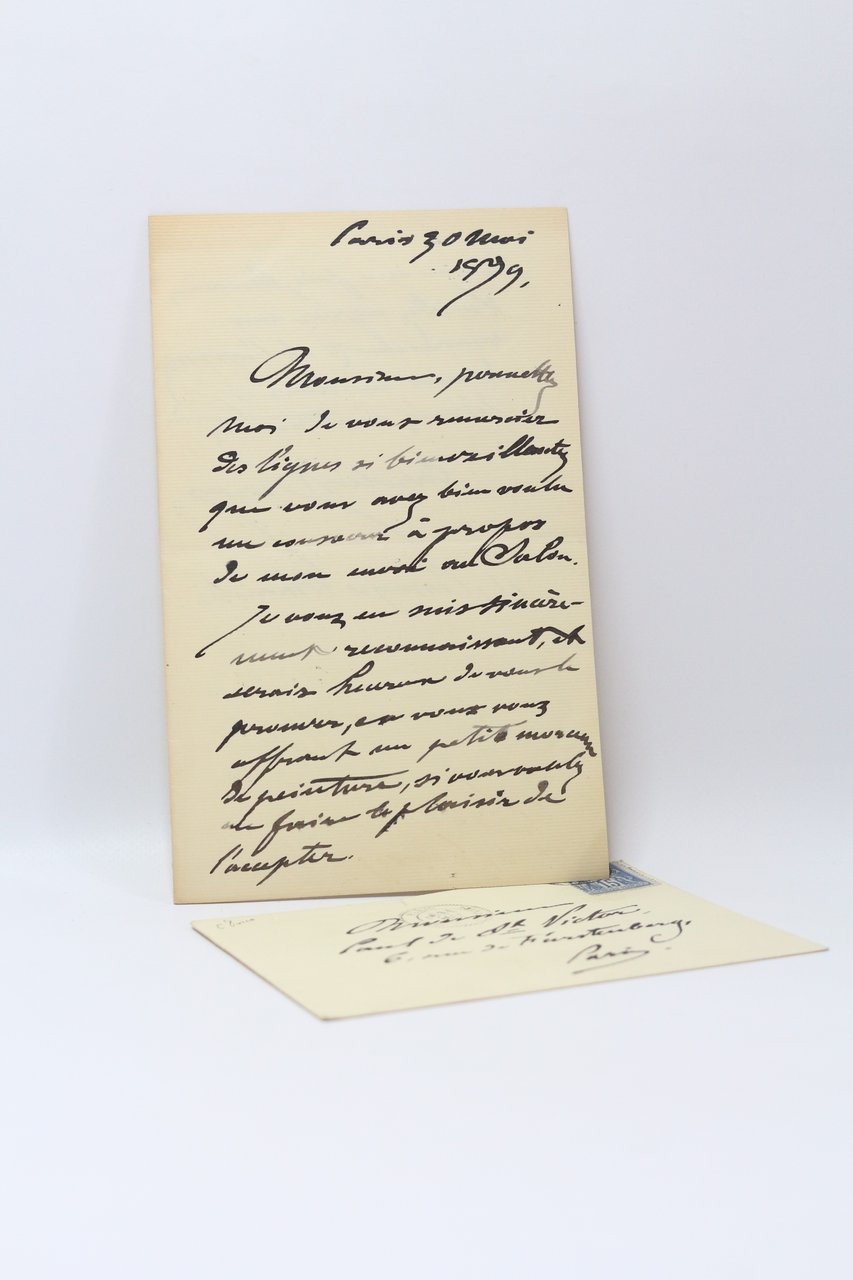 Paris 30 Mai
1879,
Monsieur, permettez
moi de vous remercier
des lignes si bienveillantes
que vous avez bien voulu
me consacrer à propos
de mon envoi au Salon.
Je vous en suis sincère-
ment reconnaissant, et
serais heureux de vous le
prouver, en vous
offrant un petit morceau
de peinture, si vous voulez
me faire le plaisir de
l'accepter.
15
Monsieur
Paul de St Victor.
6, rue de Furstenberg.
Paris.